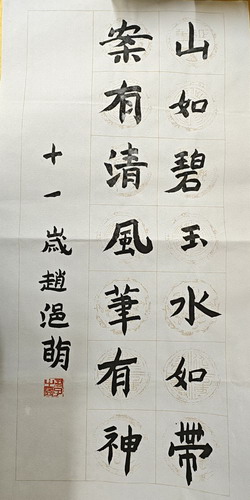 山如碧玉水如帶
案有清風筆有神
十一歲趙浥萌